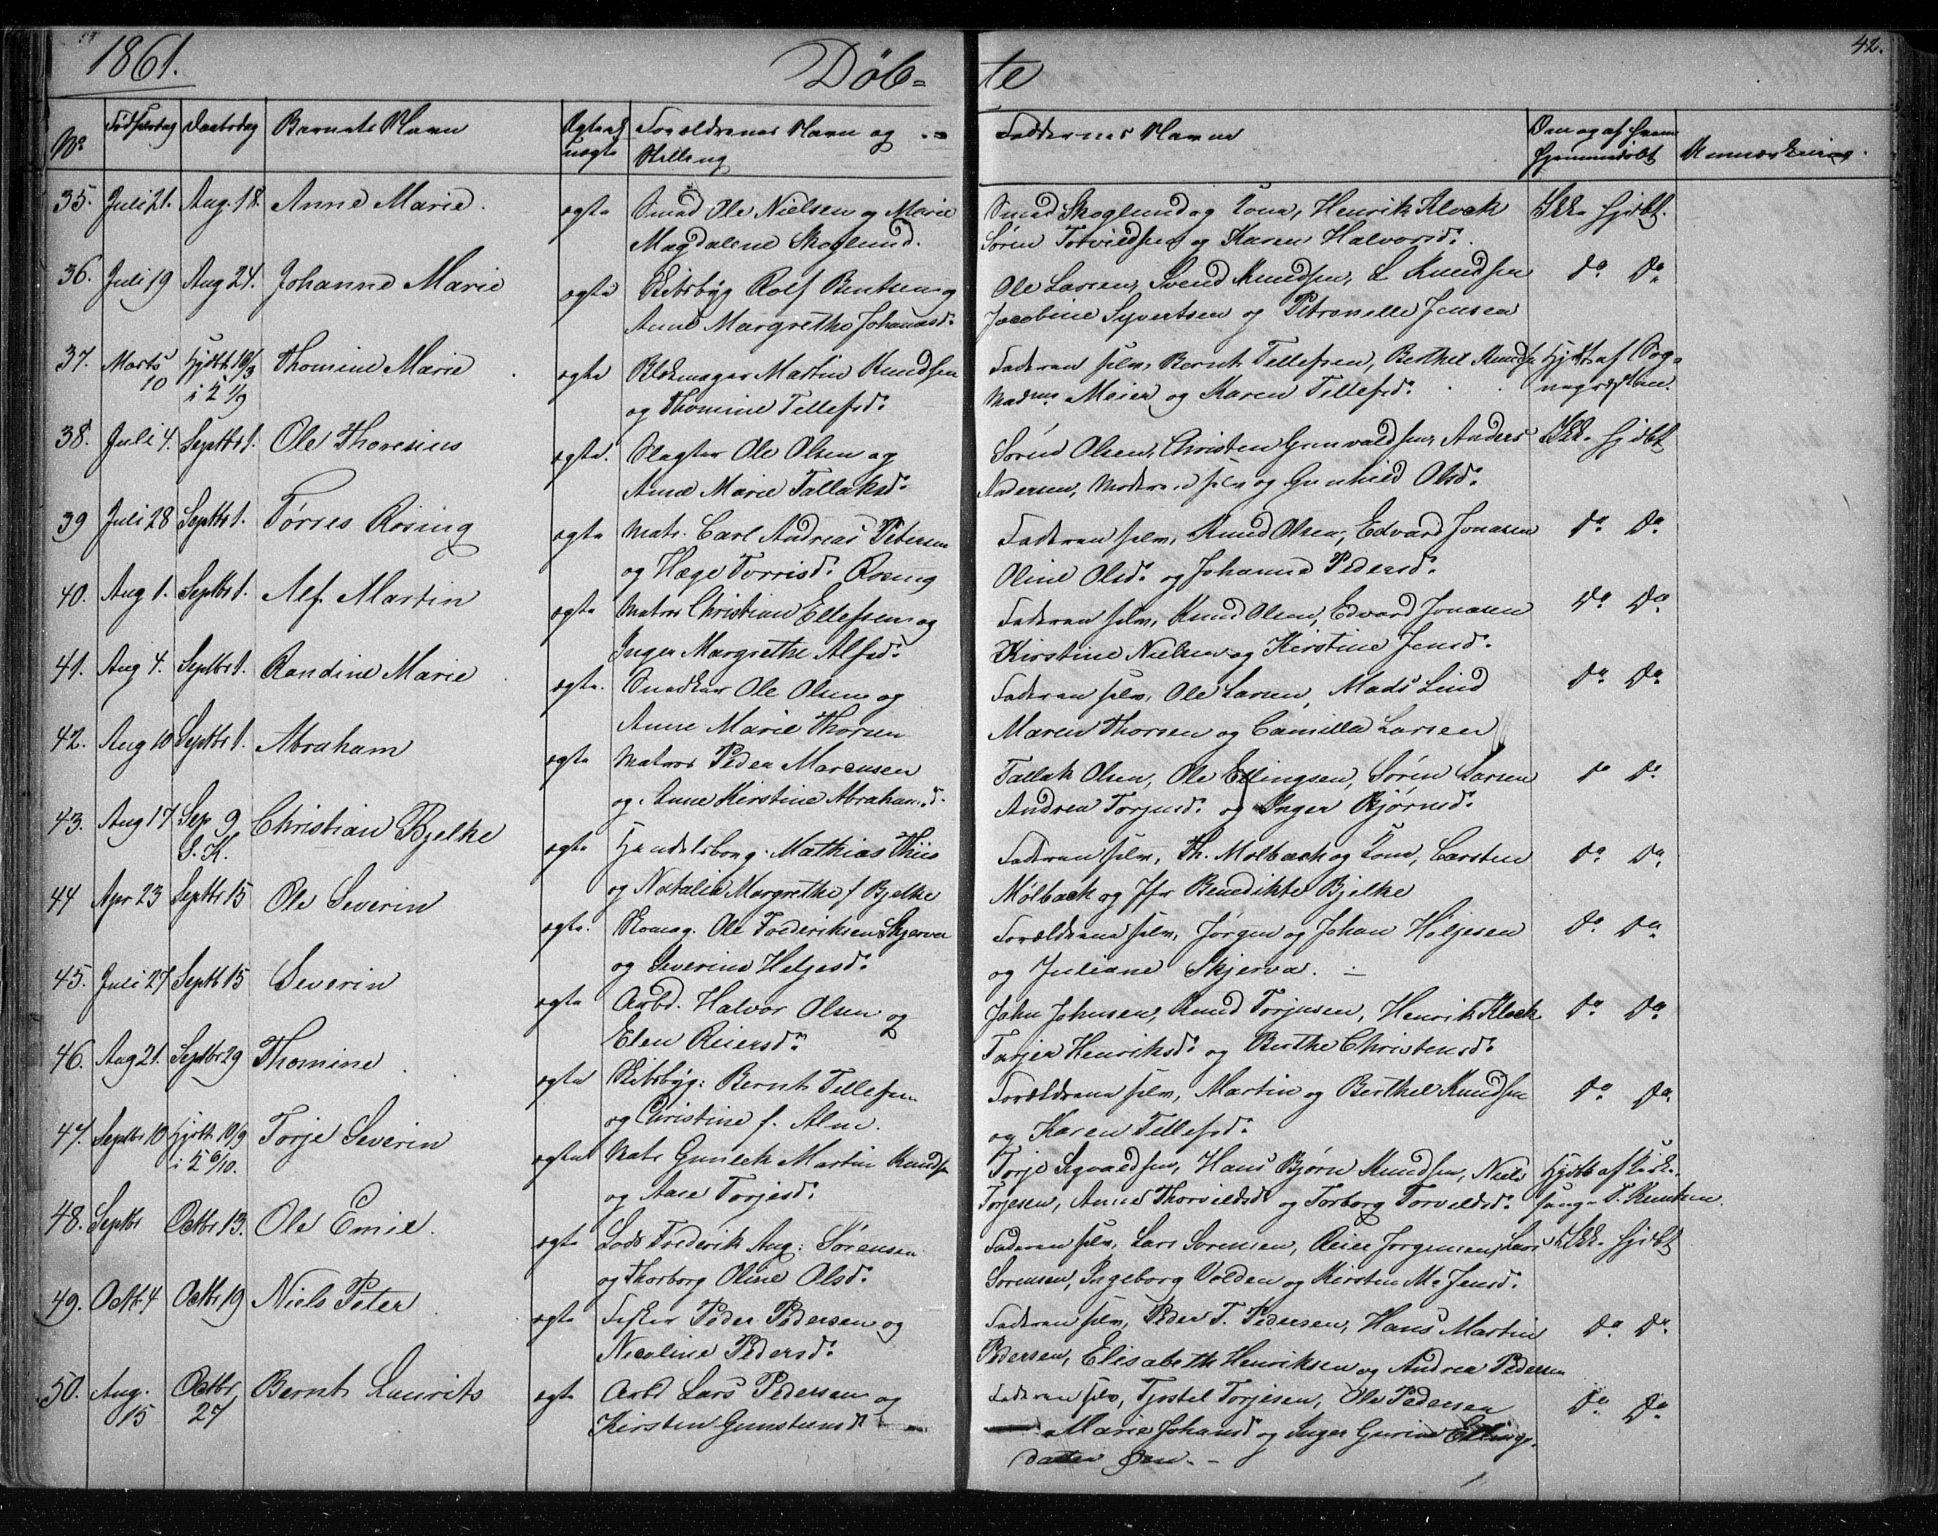 1861.
Døb=
te
42.
No
Fødselsdag
Daabsdag
Barnets Navn
Ægte ell
uægte
Forældrenes Navn og
Stilling
Faddernes Navn
hjemmedøbt
Anmærkning.
35. Juli 21. Aug. 18. Anne Marie. ægte Smed Ole Nielsen og Marie Smed Skoglund og Kone, Henrik Klock Ikke hjdbt.
Magdalene Skoglund. Søren Torvildsen og Karen Halvorsd:
36. Juli 19 Aug 24. Johanne Marie ægte Skibsbyg Rolf Bentsen og Ole Larsen, Svend Knudsen, L Knudsen Do Do
Anne Margrethe Johannesd: Jacobine Syvertsen og Petronelle Jensen
37. Marts 10 Hjdbt 19/3 i K 1/9 Thomine Marie ægte Blokmager Martin Knudsen Faderen selv, Bernt Tellefsen, Berthel Knuds Hjdbt af Sog-
og Thomine Tellefsd: Madme Meier og Karen Tellefsd: nepræsten.
38. Juli 4. Septbr 1. Ole Thoresius ægte. Slagter Ole Olsen og Søren Olsen, Christen Gunvaldsen, Anders Ikke hjdbt
Anne Marie Tallaksd: Andersen, Moderen selv og Gunhild Olsd:
39 Juli 28 Septbr 1. Tørres Rosing ægte Matr. Carl Andreas Petersen Faderen selv, Knud Olsen, Edvard Jonasen Do Do
og Hæge Torrisd: Rosing Oline Olsd: og Johanne Pedersd:
40. Aug 1. Septbr 1. Alf Martin ægte Matros Christian Ellefsen og Faderen selv, Knud Olsen, Edvard Jonasen Do Do
Inger Margrethe Alfsd: Kirstine Nielsen og Kirstine Jensd:
41. Aug 4. Septbr 1. Randine Marie ægte. Snedker Ole Olsen og Faderen selv, Ole Larsen, Mads Lind Do Do
Anne Marie Thorsen Maren Thorsen og Camilla Larsen
42. Aug 10 Septbr 1. Abraham ægte Matros Peder Marcusen Tallak Olsen, Ole Ellingsen, Søren Larsen Do Do
og Anne Kirstine Abrahamsd. Andrea Torjusd: og Inger Bjørnsd:
43. Aug 17 Sep 9 S. K. Christian Bjelke ægte Handelsborg. Mathias Thiis Faderen selv, Th. Mølback og Kone, Carsten Do Do
og Natalia Margrethe f Bjelke Mølback og Jfr Benedikte Bjelke
44 Apr 23 Septbr 15 Ole Severin ægte. Skomag. Ole Frederiksen Skjerva Forældrene selv, Jørgen og Johan Høljesen Do Do
og Severine Heljesd: og Juliane Skjerva.
45. Juli 27 Septb 15 Severin ægte Arbd. Halvor Olsen og John Johnsen, Knud Torjusen, Henrik Klock Do Do
Elen Reiersd: Tarjer Henriksd: og Berthe Christensd:
46. Aug 21. Septbr 29 Thomine ægte Skibsbyg: Bernt Tellefsen Forældrene selv, Martin og Berthel Knudsen Do Do
og Christine f. Alm. og Karen Tellefsd:
47. Septbr 10 Hjdbt 10/9 i K 6/10. Torje Severin ægte Matr Gunlek Martin Knuds Torje Sigvaldsen, Hans Bjørn Knudsen, Niels Hjdbt af Kirke-
og Aase Torjesd: Torjesen, Anne Thorvildsd og Torborg Torvildsd: sang. T. Knutsen.
48. Septbr Octbr 13. Ole Emil. ægte Lods Frederik Aug: Sørensen Faderen selv, Lars Sorensen, Reier Jørgensen, Lars Ikke hjdbt
og Thorborg Oline Olsd: Sorensen, Ingeborg Volden og Kirsten M. Jensd:
49. Octb 4 Octbr 19 Niels Peter ægte Fisker Peder Pedersen og Faderen selv, Peder T. Pedersen, Hans Martin Do Do
Nicoline Pedersd: Pedersen, Elisabeth Henriksen og Andrea Pedersen
50. Aug. 15 Octbr 27 Bernt Laurits ægte Arbd Lars Pedersen og Faderen selv, Tjostel Torjesen, Ole Pedersen Do Do
Kirsten Gunstensd: Marie Johansd og Inger Gurine Ellings-
datter